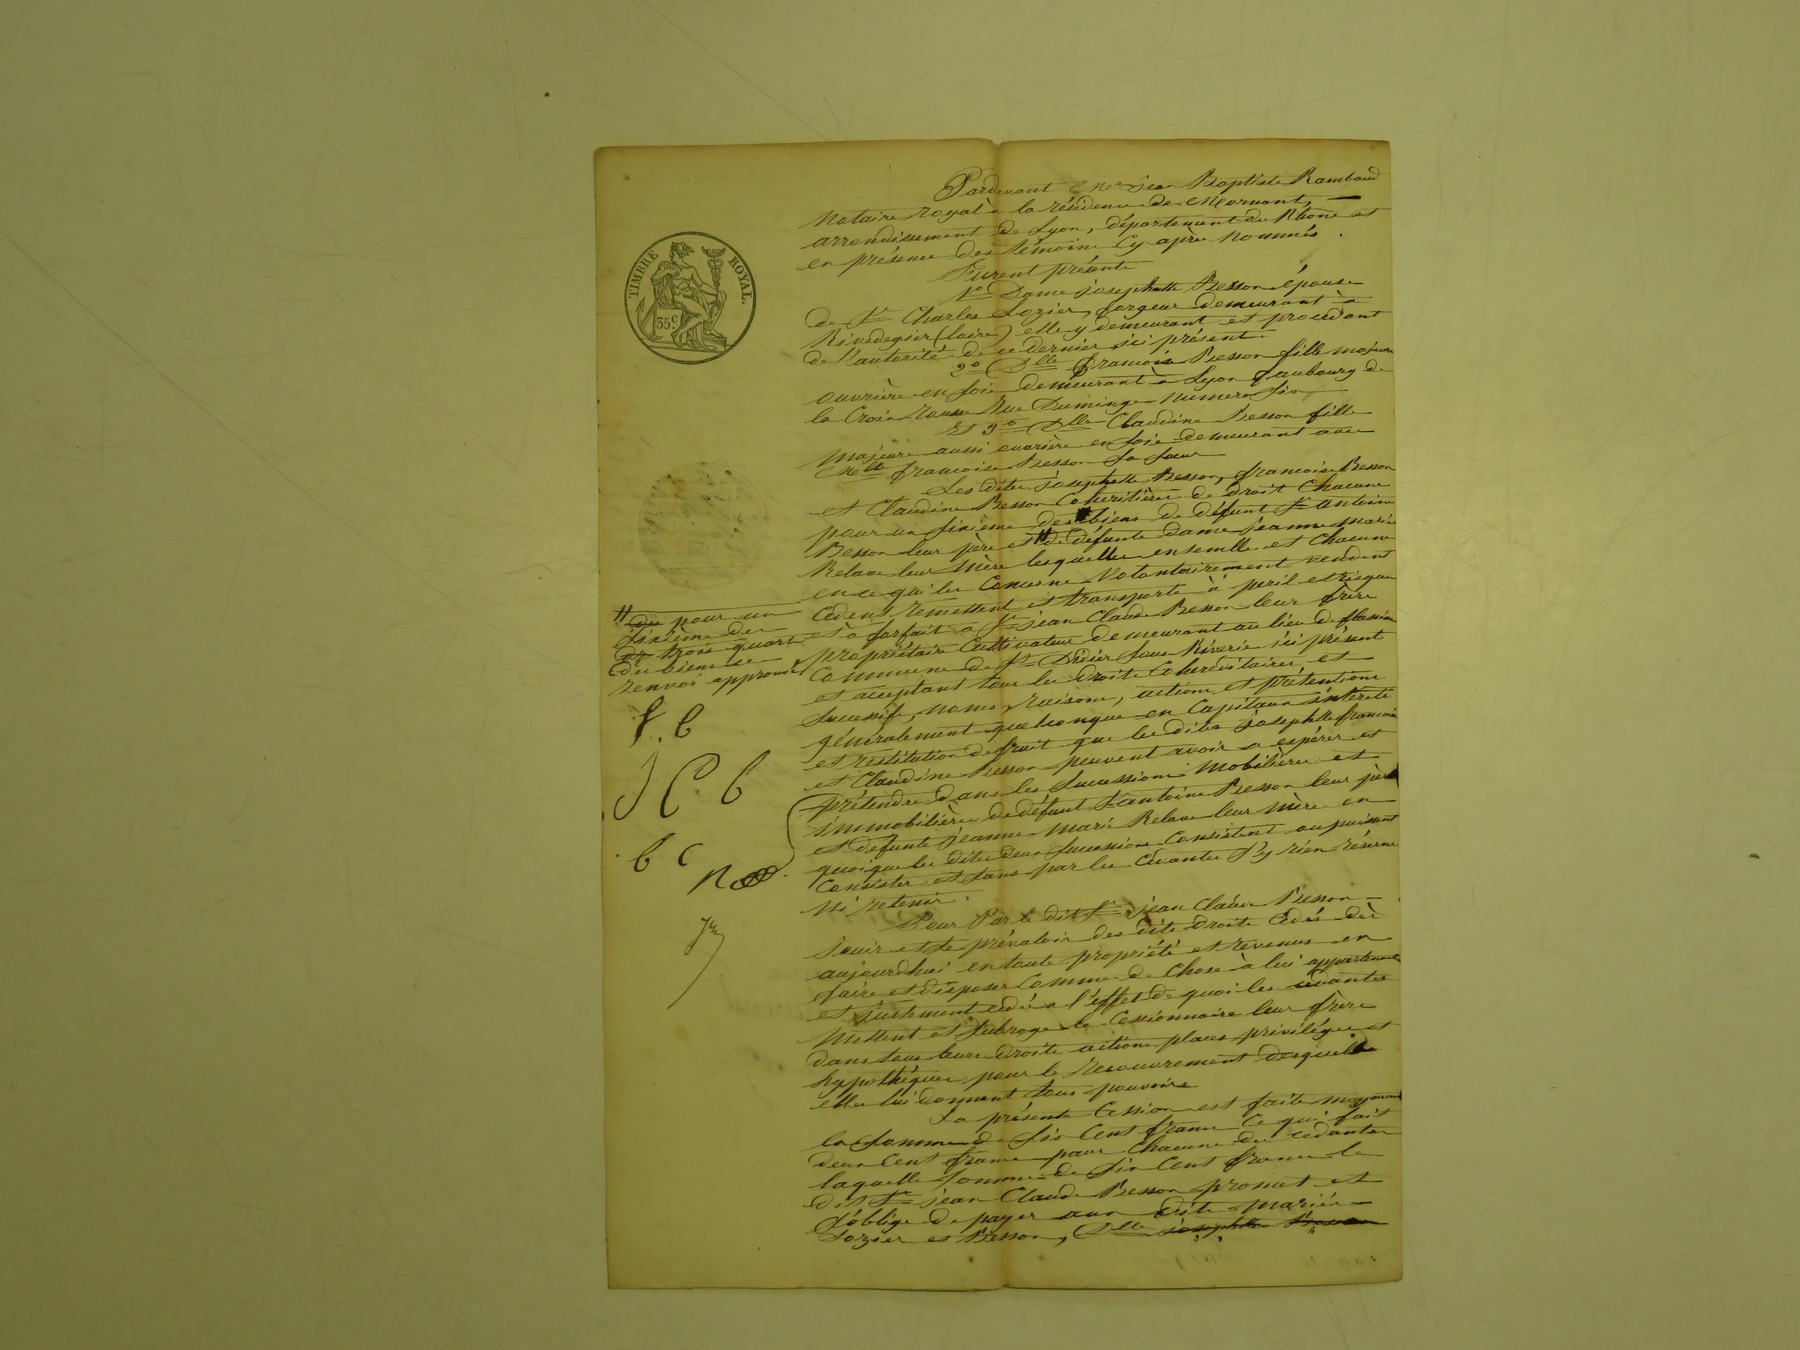 TIMBRE ROYAL.
35c
Pardevant Me Jean Baptiste Rambaud
Notaire royal à la résidence de Mornant,
arrondissement de Lyon, département du Rhône et
en présence des témoins Cy après Nommés.
Furent présents
1o Dame josephtte Besson épouse
de Sr Charles Lozier, forgeur demeurant à
Rivedegier (loire) elle y demeurant et procédant
de l'autorité de ce dernier ici présent.
2o Dlle francoise Besson fille majeure
ouvrière en soie demeurant à Lyon faubourg de
la Croix rousse Rue Dumenge Numero six
Et 3o Dlle Claudine Besson fille
Majeure aussi ouvrière en soie demeurant avec
francoise Besson sa sœur
Les dites josephtte Besson, francoise Besson
et Claudine Besson Coheritières de droit Chacune
pour un sixieme des biens de défunt Sr antoine
Besson leur père et # de défunte dame jeanne marie
Relave leur Mère lesquelles ensemble et Chacune
en ce qui les Concerne Volontairement vendent
Cedent remettent et transporte à péril et risque
et a forfait a Sr jean Claude Besson leur frère
propriétaire Cultivateur demeurant au lieu de
Commune de St Didier sous Riverie ici présent
et acceptant tous les droits Cohéréditaires et
Successifs, noms, raisons, actions et prétentions
généralement quelconque en Capitaux intérets
et restitution de fruit que les dites josephtte francoise
et Claudine Besson peuvent avoir a espérer et
prétendre dans les Successions Mobilières et
immobilières de défunt Sr antoine Besson leur père
et defunte Jeanne Marie Relave leur Mère en
quoi que les dites deux Successions Consistent ou puissent
Consister et sans par les Cédantes s'y rien réserver
Ni retenir.
Pour Par le dit Sr jean Claude Besson
Jouir et se prévaloir des dits droits Cédés dès
aujourdhui en toute propriété et revenus en
faire et disposer Comme de Chose à lui appartenante
et justement cédée a l'effet de quoi les cédantes
Mettent et subroge le Cessionnaire leur frère
dans tous leurs droits actions places privilèges et
hypothèques pour le recouvrement desquels
elles lui donnent tous pouvoirs
La présente Cession est faite moyennant
la somme de six Cent francs Ce qui fait
deux Cent francs pour Chacune des cédantes
laquelle somme de six Cent francs le
dit Sr jean Claude Besson promet et
s'oblige de payer aux dits mariés
Lozier et Besson, Dlle josephtte Besson
# pour un
sixième des
de trois quart
des biens
renvoi approuvé
f. b
J C b
b c